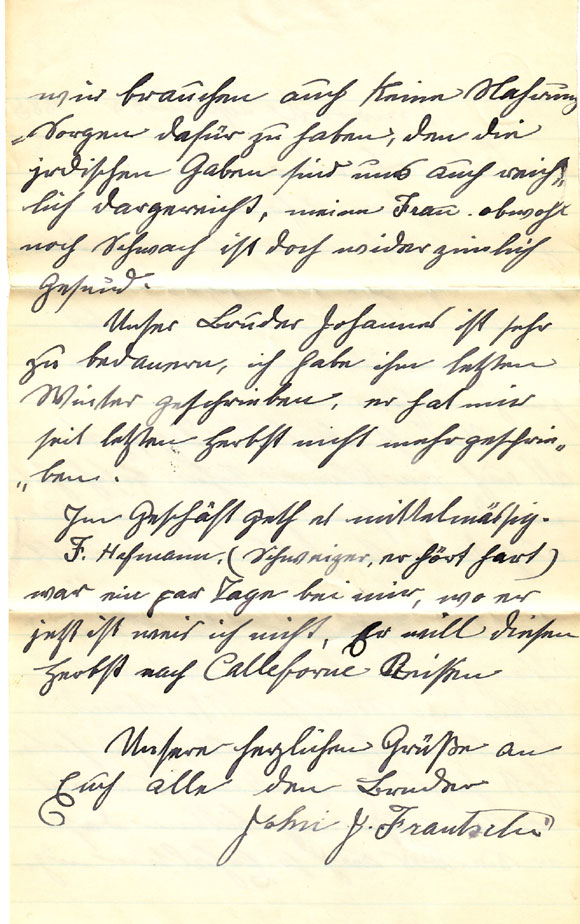 wir brauchen auch keine Nahrung
„Sorgen dafür zu haben, den die
jrdischen Gaben sind uns auch reich„
lich dargereicht, meine Frau obwohl
noch Schwach ist doch wider zimlich
Gesund.
Unser Bruder Johannes ist sehr
zu bedauern, ich habe ihm letzten
Winter geschrieben, er hat mir
seit letzten Herbst nicht mehr geschrie„
„ben.
Im Geschäft geth es mittelmässig.
F. Hofmann. (Schweizer, er hört hart)
war ein par Tage bei mir, wo er
jetzt ist weis ich nicht, Er will diesen
Herbst nach Calleforne Reisen
Unsere herzlichen Grüße an
Euch alle den Bruder
John J. Frautschi